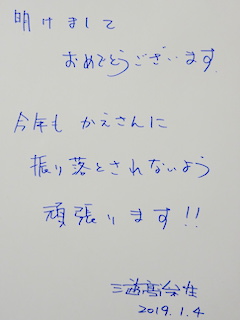 明けまして
おめでとうございます
今年も かえさんに
振り落とされないよう
頑張ります!!
2019.1.4